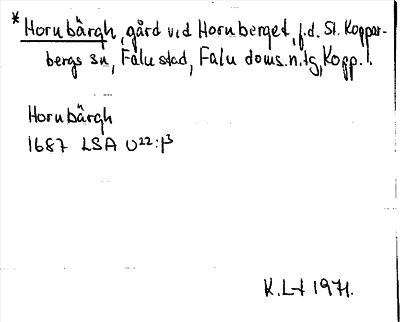 * Hornbärgh, gård vid Hornberget, f.d. St. Koppar-
bergs sn, Falu stad, Falu doms.n.tg, Kopp. l.
Hornbärgh
1687 LSA U22:1³
K.L-t 1971.